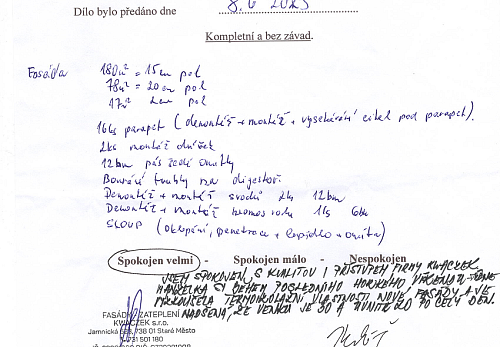 Dílo bylo předáno dne 8.6 2023
Kompletní a bez závad.
Fasáda 180m² = 15cm pol
78m² = 20cm pol
17m² 2cm pol
16ks parapet (demontáž + montáž + vysekávání cihel pod parapet).
2ks montáž
12bm pás
Bourání pro digestoř
Demontáž + montáž svodů 2ks 12bm
Demontáž + montáž hromosvodu 1ks 6bm
SLOUP (oklepání, penetrace + lepidlo + omítka)
Spokojen velmi - Spokojen málo - Nespokojen
JSEM SPOKOJEN S KVALITOU I PŘÍSTUPEM FIRMY KWACZEK
MANŽELKA SI BĚHEM POSLEDNÍHO HORKÉHO VÍKENDU
TERMOIZOLAČNÍ VLASTNOSTI NOVÉ FASÁDY A JE
NADŠENÁ, ŽE VENKU JE 30 A UVNITŘ 20 PO CELÝ DEN.
FASÁDY ZATEPLENÍ
KWACZEK s.r.o.
Jamnická 735, 738 01 Staré Město
731 501 180